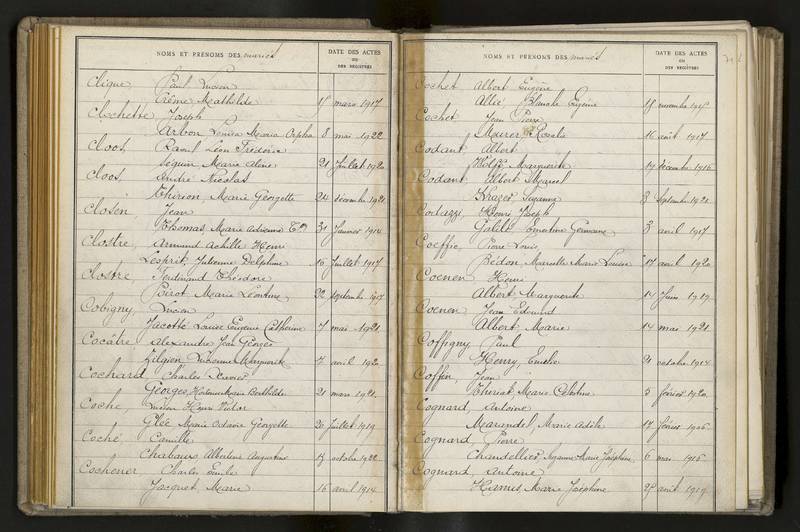 NOMS ET PRÉNOMS DES mariés
DATE DES ACTES
OU
DES REGISTRES
Clique, Paul Lucien
Crême Mathilde 15 mars 1917
Clochette Joseph
Arbon Louise Maria Orpha 8 mai 1922
Cloos, Raoul Léon Fréderic
Seguin Marie Aline 21 Juillet 1920
Cloos, André Nicolas
Thirion Marie Georgette 24 décembre 1921
Closen, Jean
Thomas, Marie Adrienne 31 Janvier 1914
Clostre, Armand Achille Henri
Lesprit, Julienne Delphine 16 Juillet 1917
Clostre, Ferdinand Théodore
Poirot Marie Léontine 22 septembre 1917
Cobigny, Lucien
Jacotté Louise Eugenie Catherine 7 mai 1921
Cocâtre, Alexandre Jean Georges
Marguerite 7 avril 1920
Cochard, Charles Xavier
Georges, Marie Bathilde 21 mars 1921
Coche, Lucien Henri Victor
Glée Marie Octavie Georgette 26 Juillet 1919
Coché Camille
Chabaux Albertine Augustine 19 octobre 1922
Cochener Charles Emile
Jacquet, Marie 16 avril 1914
NOMS ET PRÉNOMS DES mariés
DATE DES ACTES
OU
DES REGISTRES
Cochet Albert Eugène
Allié Blanche Eugénie 18 novembre
Cochet Jean Pierre
Meurer Rosalie 16 août 1917
Codant Albert
Marguerite 19 décembre 1916
Codant, Albert Marcel
Krazer Suzanne 8 Septembre 1921
Codazzi, Henri Joseph
Galilé Ernestine Germaine 3 avril 1917
Coeffic Pierre Louis
Bédon, Marcelle Marie Louise 17 avril 1920
Coenen Henri
Albert Marguerite 14 Juin 1919
Coenen Jean Edouard
Albert, Marie 14 mai 1921
Coffigny Paul
Henry, Emélie 21 octobre 1914
Coffin, Jean
Thiriot Marie Célestine 5 février 1920
Cognard, Antoine
Marandel, Marie Adèle 17 février 1906
Cognard, Pierre
Chandellier, Suzanne Marie Joséphine 6 mai 1916
Cognard, Antoine
Hamus, Marie Joséphine 28 août 1919